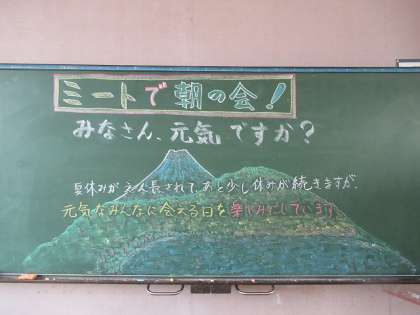 ミートで朝の会！
みなさん、元気ですか？
夏休みが延長されて、あと少し休みが続きますが、
元気なみんなに会える日を楽しみにしています